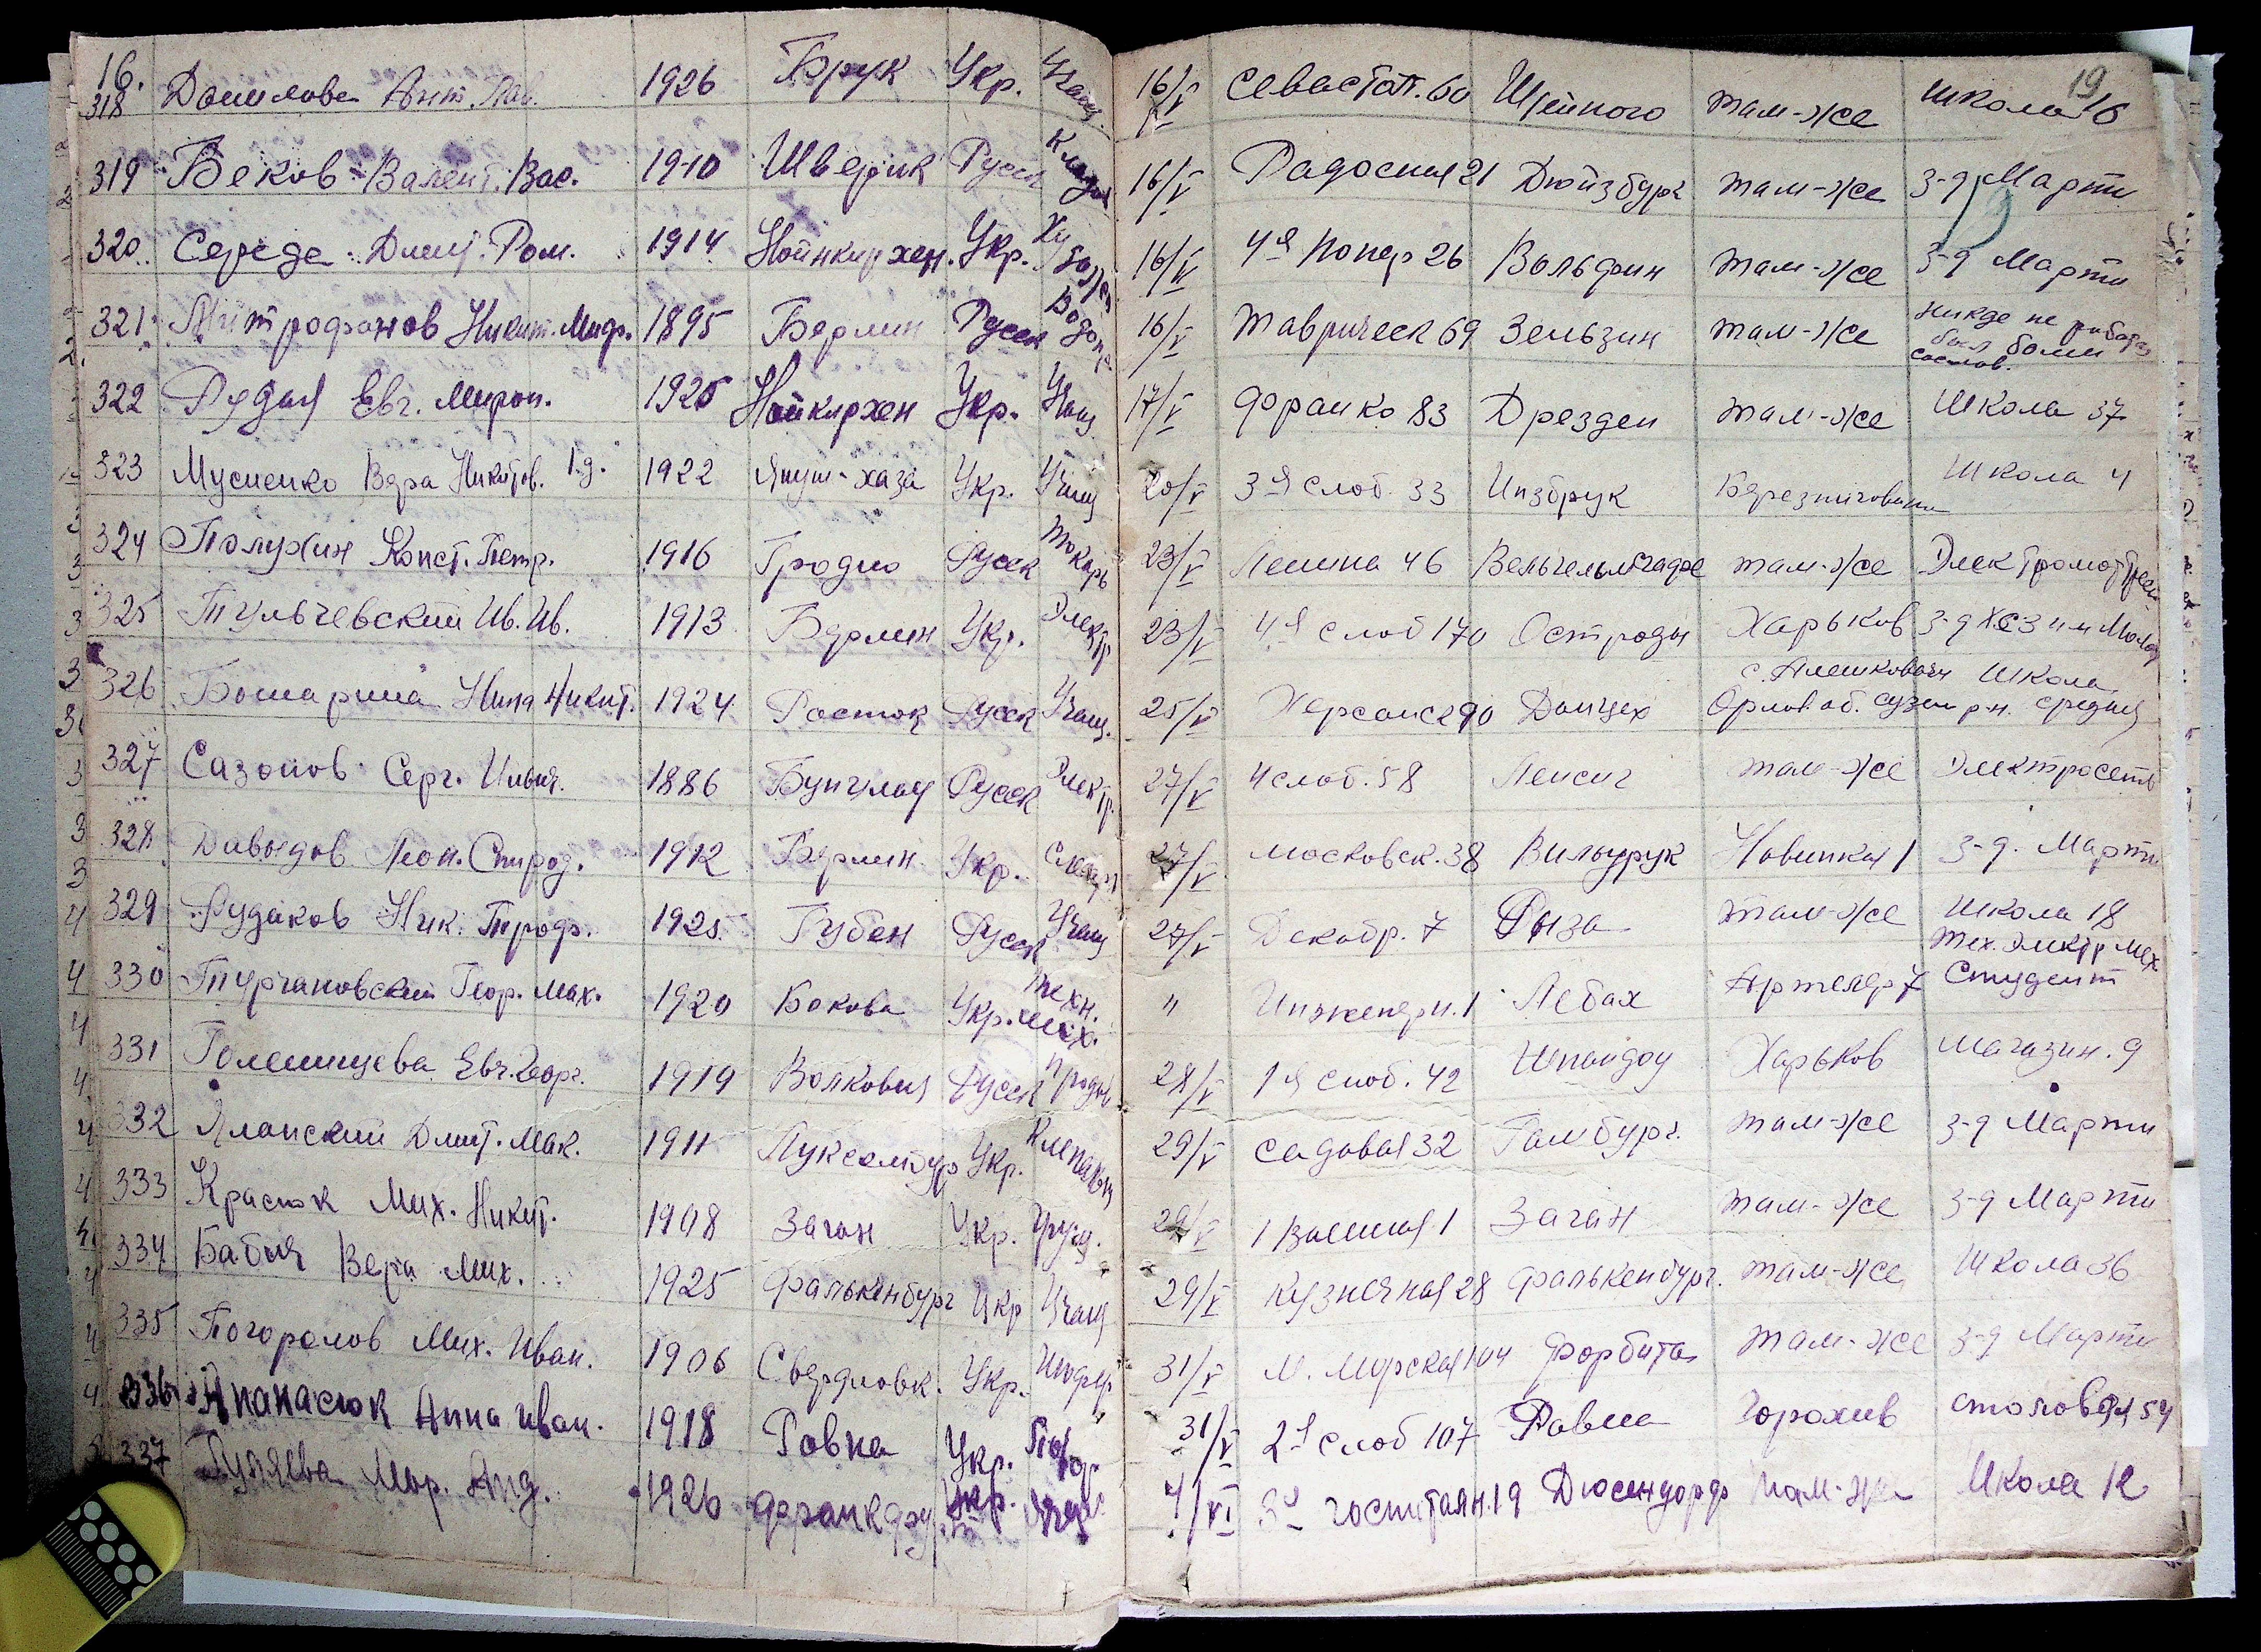 16. 19
318 Данилова Ант. Пав. 1926 Брук Укр. Учащ. 16/V Севастоп. 60 там-же Школа 16
319 Беков Валент. Вас. 1910 Шверик Русск 16/V Радосная 21 Дюйзбург там-же З-д Марти
320 Середа Дмит. Ром. 1914 Нойнкирхен. Укр. 16/V 4я попер 26 Вольфин там-же З-д Марти
321 Митрофанов Никит. Митр. 1895 Берлин Русск 16/V Таврическ 69 Зельзин там-же нигде не работал
был болен
322 Рудая Евг. Мирон. 1925 Нойкирхен Укр. Учащ 17/V Франко 83 Дрезден там-же Школа 37
323 Мусиенко Вера Никитов. 1.д. 1922 Януш-хаза Укр. Учащ 20/V 3я слоб. 33 Инзбрук Школа 4
324 Полухин Конст. Петр. 1916 Гродно Русск Токарь 23/V Ленина 46 там-же
325 Тульчевский Ив. Ив. 1913 Берлин Укр. Электр 23/V 4я слоб 170 Остроды Харьков З-д
326 Бошарина Нина Никит. 1924 Росток Русск Учащ. 25/V Херсонс 290 Данцех Орлов. об. р-н. Школа
средняя
327 Сазонов Серг. Ильич. 1886 Бунцлау Русск Электр. 27/V 4 слоб. 58 Лепсиг там-же Электросеть
328 Давыдов Леон. Спирод. 1912 Берлин Укр. 27/V Московск. 38 Новинная 1 З-д. Марти
329 Рудаков Ник. Троф. 1925 Губен Русск Учащ 27/V Декабр. 7 Рыза там-же Школа 18
Тех. электр мех
330 Турчановский Геор. Мах. 1920 Бокова Укр. техн. мех. " Инженерн. 1 Лебах Артилер 7 Студент
331 Голенищева Евг. Георг. 1919 Волковия Русск продав 28/V 1я слоб. 42 Шпандоу Харьков Магазин. 9
332 Яланский Дмит. Мак. 1911 Луксембур Укр. 29/V Садовая 32 Гамбург. там-же З-д Марти
333 Красюк Мих. Никит. 1908 Заган Укр. Грузч. 29/V 1 Военная 1 Заган там-же З-д Марти
334 Бабич Вера Мих. 1925 Фалькенбург Укр Учащ 29/V Кузнечная 28 Фалькенбург. там-же Школа 36
335 Погорелов Мих. Иван. 1906 Свердловк. Укр. Шофер 31/V М. Морская 104 Форбита там-же З-д Марти
336 Апанасюк Анна Иван. 1918 Ровна Укр. Повар 31/V 2я слоб 107 Равна Горохив столовая 54
337 Гуляева Мар. Анд. 1926 Франкфурт Укр. Учащ 4/VI 3я госпиталн. 19 Дюсендорф там-же Школа 12